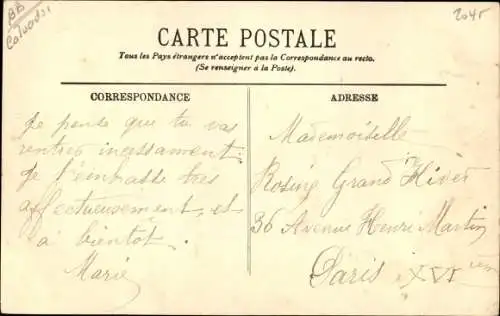 BB
Calvados
2045
CARTE POSTALE
Tous les Pays étrangers n'acceptent pas la Correspondance au recto.
(Se renseigner à la Poste).
CORRESPONDANCE
Je pense que tu vas
rentrer incessament
Je t'embrasse très
affectueusement, et
à bientôt.
Marie
ADRESSE
Mademoiselle
Rosine Grand Hiver
36 Avenue Henri Martin
Paris XVI ième